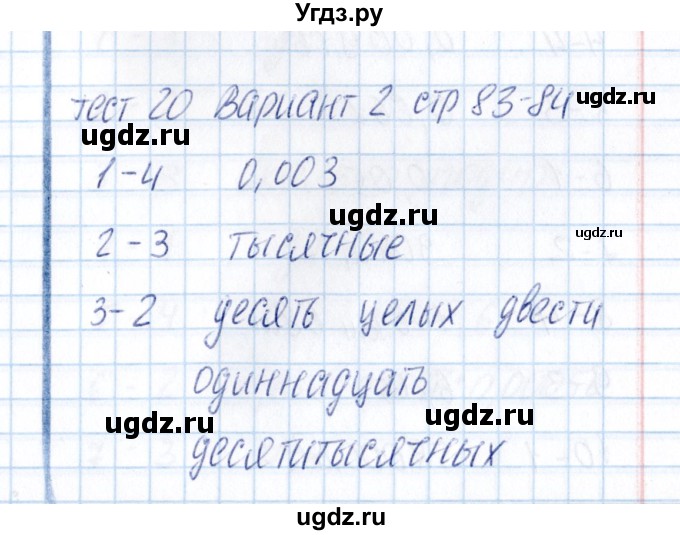 Угдз.ру
тест 20 Вариант 2 стр 83-84
ugdz.ru
ugdz.ru
1-4 0,003
ugdz.ru
ugdz.ru
2-3 тысячные
3-2 десять целых двести
одиннадцать
ugdz.ru
ugdz.ru
десятитысячных
ugdz.ru